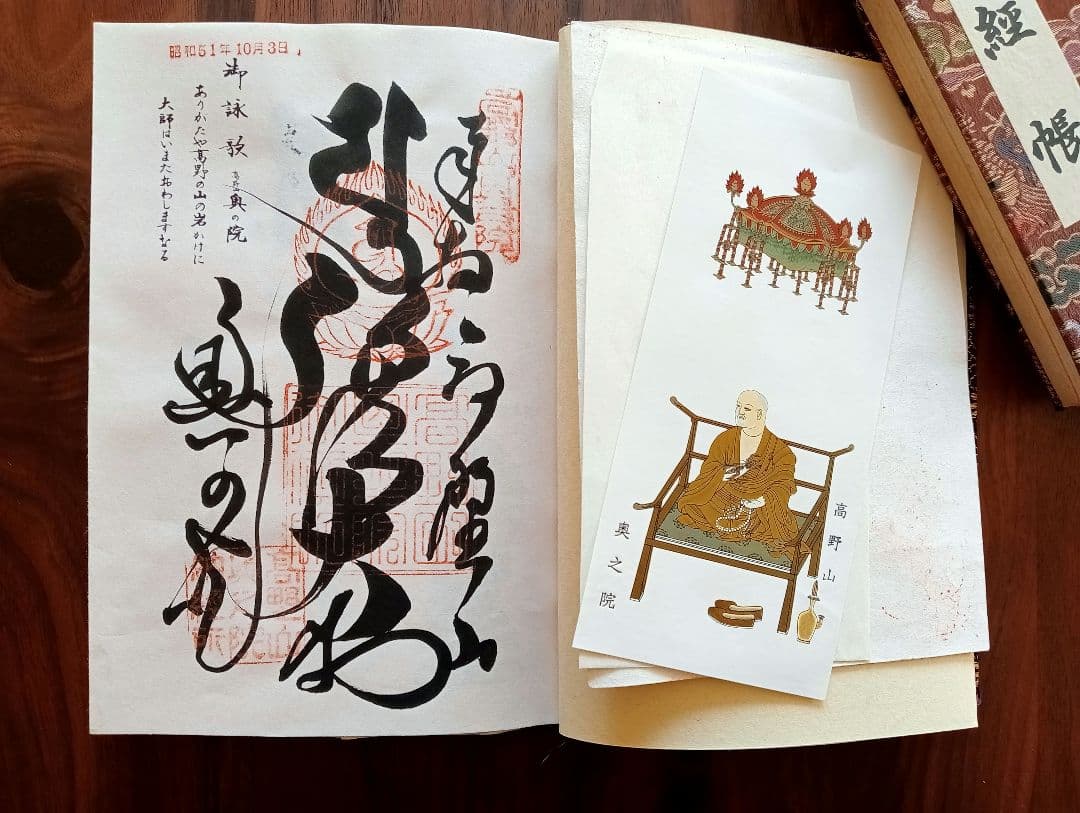 昭和51年10月3日
高野山
弘法大師
奥の院
御詠歌
奥の院
ありかたや高野の山の岩かけに
大師はいまたおわしますなる
高野山
奥之院
經帳